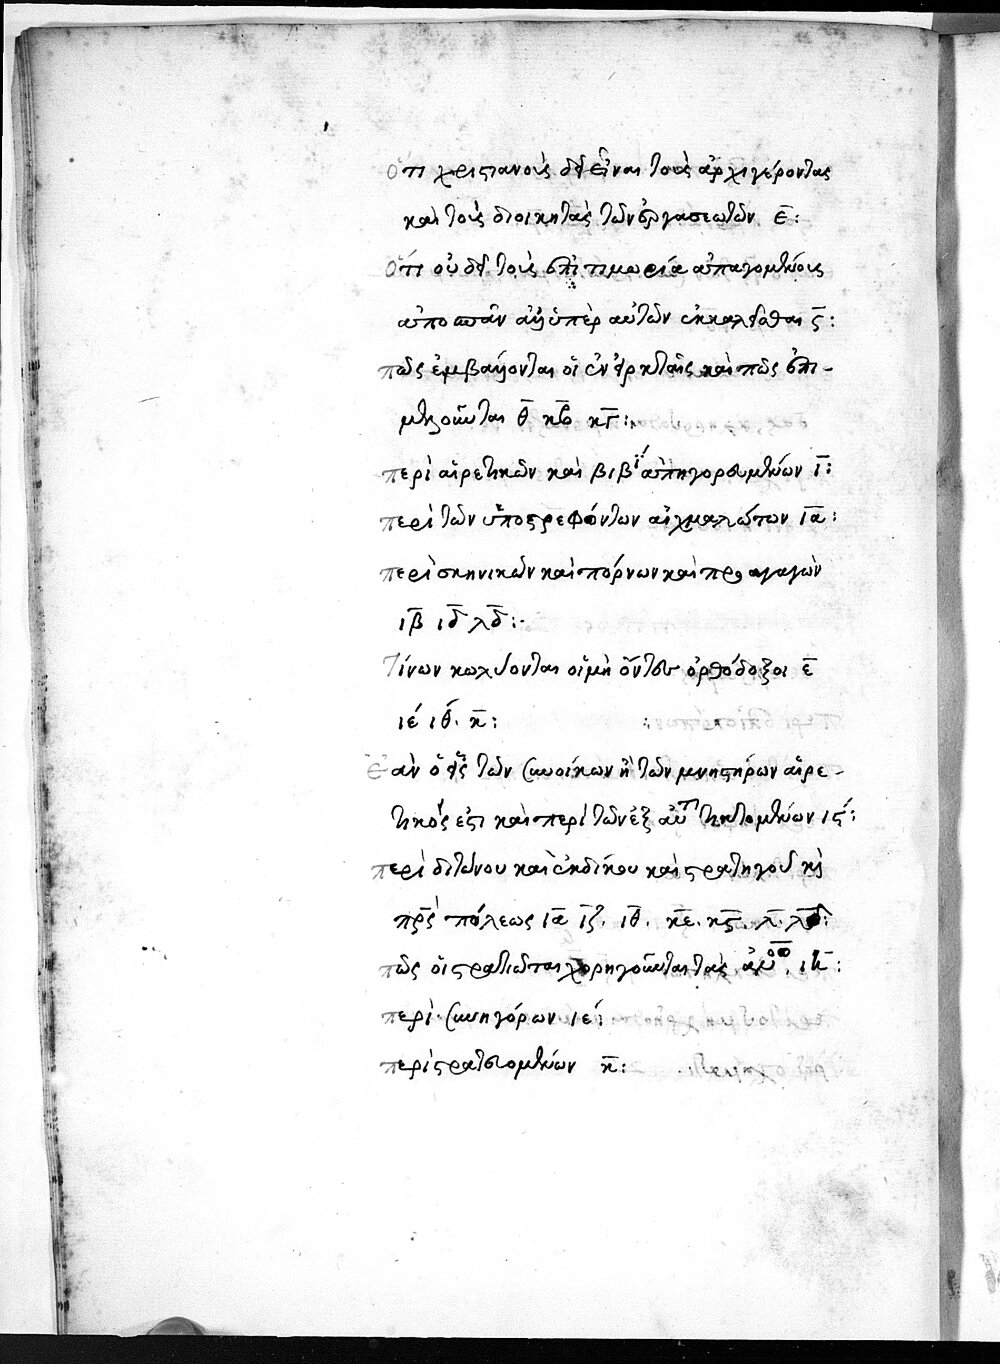 Ὅτι χριστιανοὺς δεῖ εἶναι τοὺς ἀρχιγέροντας
καὶ τοὺς διοικητὰς τῶν ἐργασεωτῶν ε̅:
Ὅτι οὐδὲ τοῖς ἐπὶ τιμωρία ἀπαγομένοις
ὑπὲρ αὐτῶν ἐκκαλεῖσθαι ς̅:
πῶς ἐμβάλλονται οἱ ἐν εἱρκταῖς καὶ πῶς ἐπι-
μελοῦνται θ̅ κβ̅ κγ̅:
περὶ αἱρετικῶν καὶ βιβλί ἀπηγορευμένων ι̅:
περὶ τῶν ὑποστρεφόντων αἰχμαλώτων ια̅:
περὶ σκηνικῶν καὶ πόρνων καὶ προαγωγῶν
ιβ̅ ιδ̅ λδ̅:
Τίνων κωλύονται οἱ μὴ ὄντες ὀρθόδοξοι ε̅
ιέ ιθ́. κ̅:
Ἐὰν ὁ εἷς τῶν συνοίκων ἢ τῶν μνηστήρων αἱρε-
τικός ἐστι καὶ περὶ τῶν ἐξ αὐτ τικτομένων ις́:
περὶ καὶ ἐκδίκου καὶ στρατηγοῦ κ
πρς πόλεως ια̅ ιζ̅. ιθ̅. κε̅. κς̅. λ̅. λδ̅:
πῶς οἱ στρατιῶται χορηγοῦνται τὰς ιη̅:
περὶ συνηγόρων ιέ:
περὶ στρατευομένων κ̅: